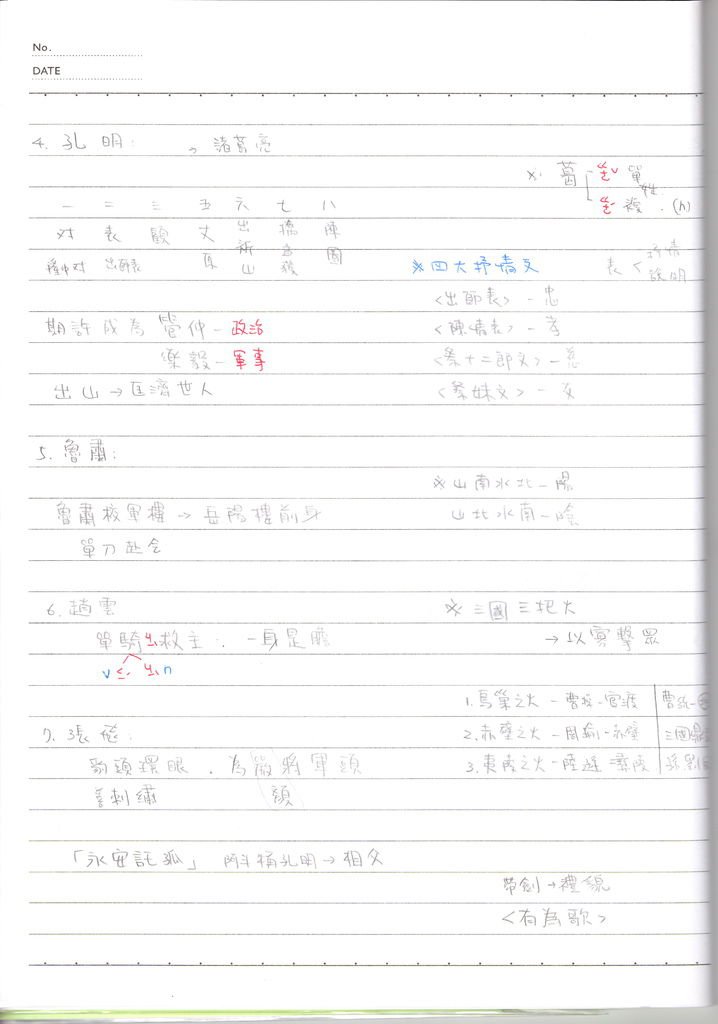 No.
DATE
4. 孔明: → 諸葛亮
※ 葛 ㄍㄜˇ 單姓
ㄍㄜˊ 複. (n)
一 二 三 五 六 七 八
对 表 顧 丈 出 擒 陣
原 祁 孟 圖
山 獲
隆中对 出師表
※四大抒情文
表 < 抒情
說明
<出師表> - 忠
期許成為 管仲 - 政治
<陳情表> - 孝
樂毅 - 軍事
<祭十二郎文> - 慈
出山 → 匡濟世人
<祭妹文> - 友
5. 魯肅:
※ 山南水北 - 陽
魯肅校軍樓 → 岳陽樓前身
山北水南 - 陰
單刀赴会
6. 趙雲
※ 三國三把火
單騎出救主: 一身是膽
→ 以寡擊眾
v ㄑㄧˊ ㄐㄧˋ n
1. 烏巢之火 - 曹操 - 官渡
7. 張飛:
2. 赤壁之火 - 周瑜 - 赤壁 三國鼎
3. 夷陵之火 - 陸遜
豹頭環眼. 為嚴將軍頭
善刺繡 顏
「永安託孤」 阿斗稱孔明 → 相父
帶劍 → 禮貌
<有為歌>